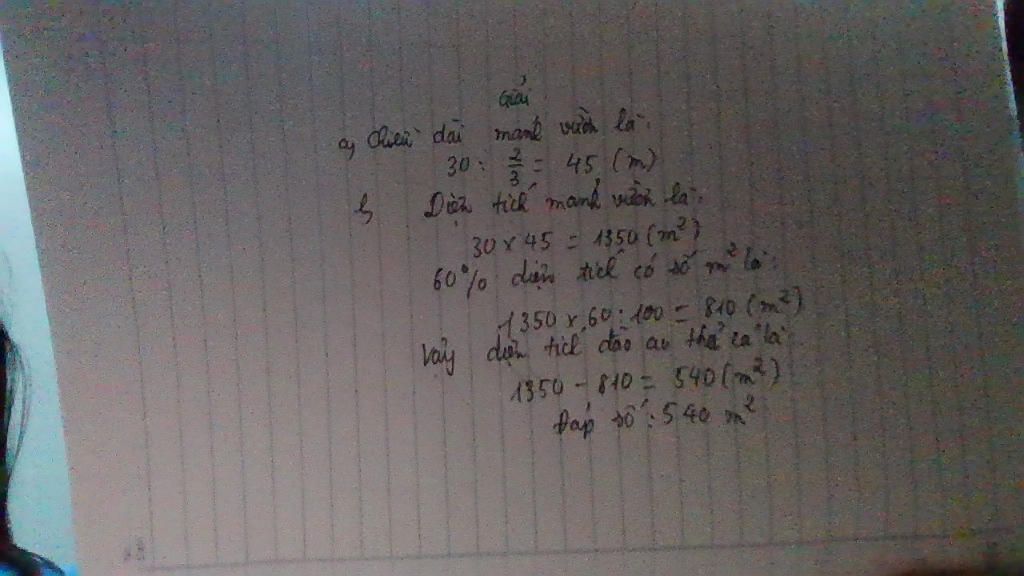 Giải
a, Chiều dài mảnh vườn là:
30 : 2/3 = 45 (m)
b, Diện tích mảnh vườn là:
30 x 45 = 1350 (m²)
60% diện tích có số m² là:
1350 x 60 : 100 = 810 (m²)
Vậy diện tích đào ao thả cá là:
1350 - 810 = 540 (m²)
Đáp số : 540 m²